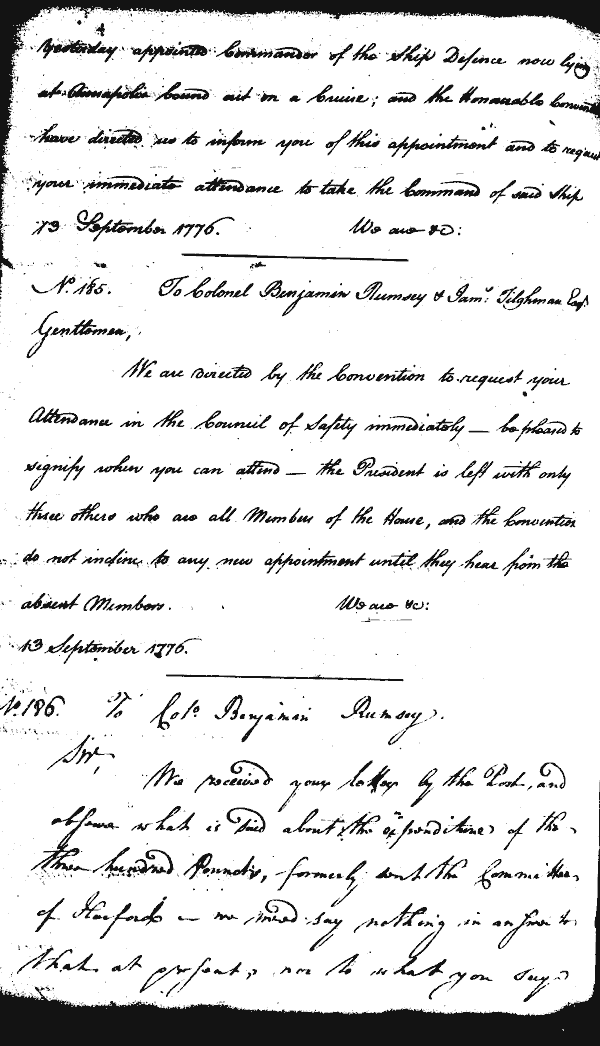 yesterday appointed Commander of the Ship Defence now lying
at Annapolis bound out on a Cruise; and the Honourable Convention
have directed us to inform you of this appointment and to request
your immediate attendance to take the Command of said Ship
13 September 1776. We are &c:
No. 185. To Colonel Benjamin Rumsey & Jams. Tilghman Esqr.
Gentlemen,
We are directed by the Convention to request your
Attendance in the Council of Safety immediately — be pleased to
signify when you can attend — the President is left with only
three others who are all Members of the House, and the Convention
do not incline to any new appointment until they hear from the
absent Members. We are &c:
13 September 1776.
No. 186. To Colo. Benjamin Rumsey.
Sir,
We received your letter by the Post, and
observe what is said about the expenditure of the
three hundred Pounds, formerly sent the Committee
of Harford — we need say nothing in answer to
that at present, nor to what you say